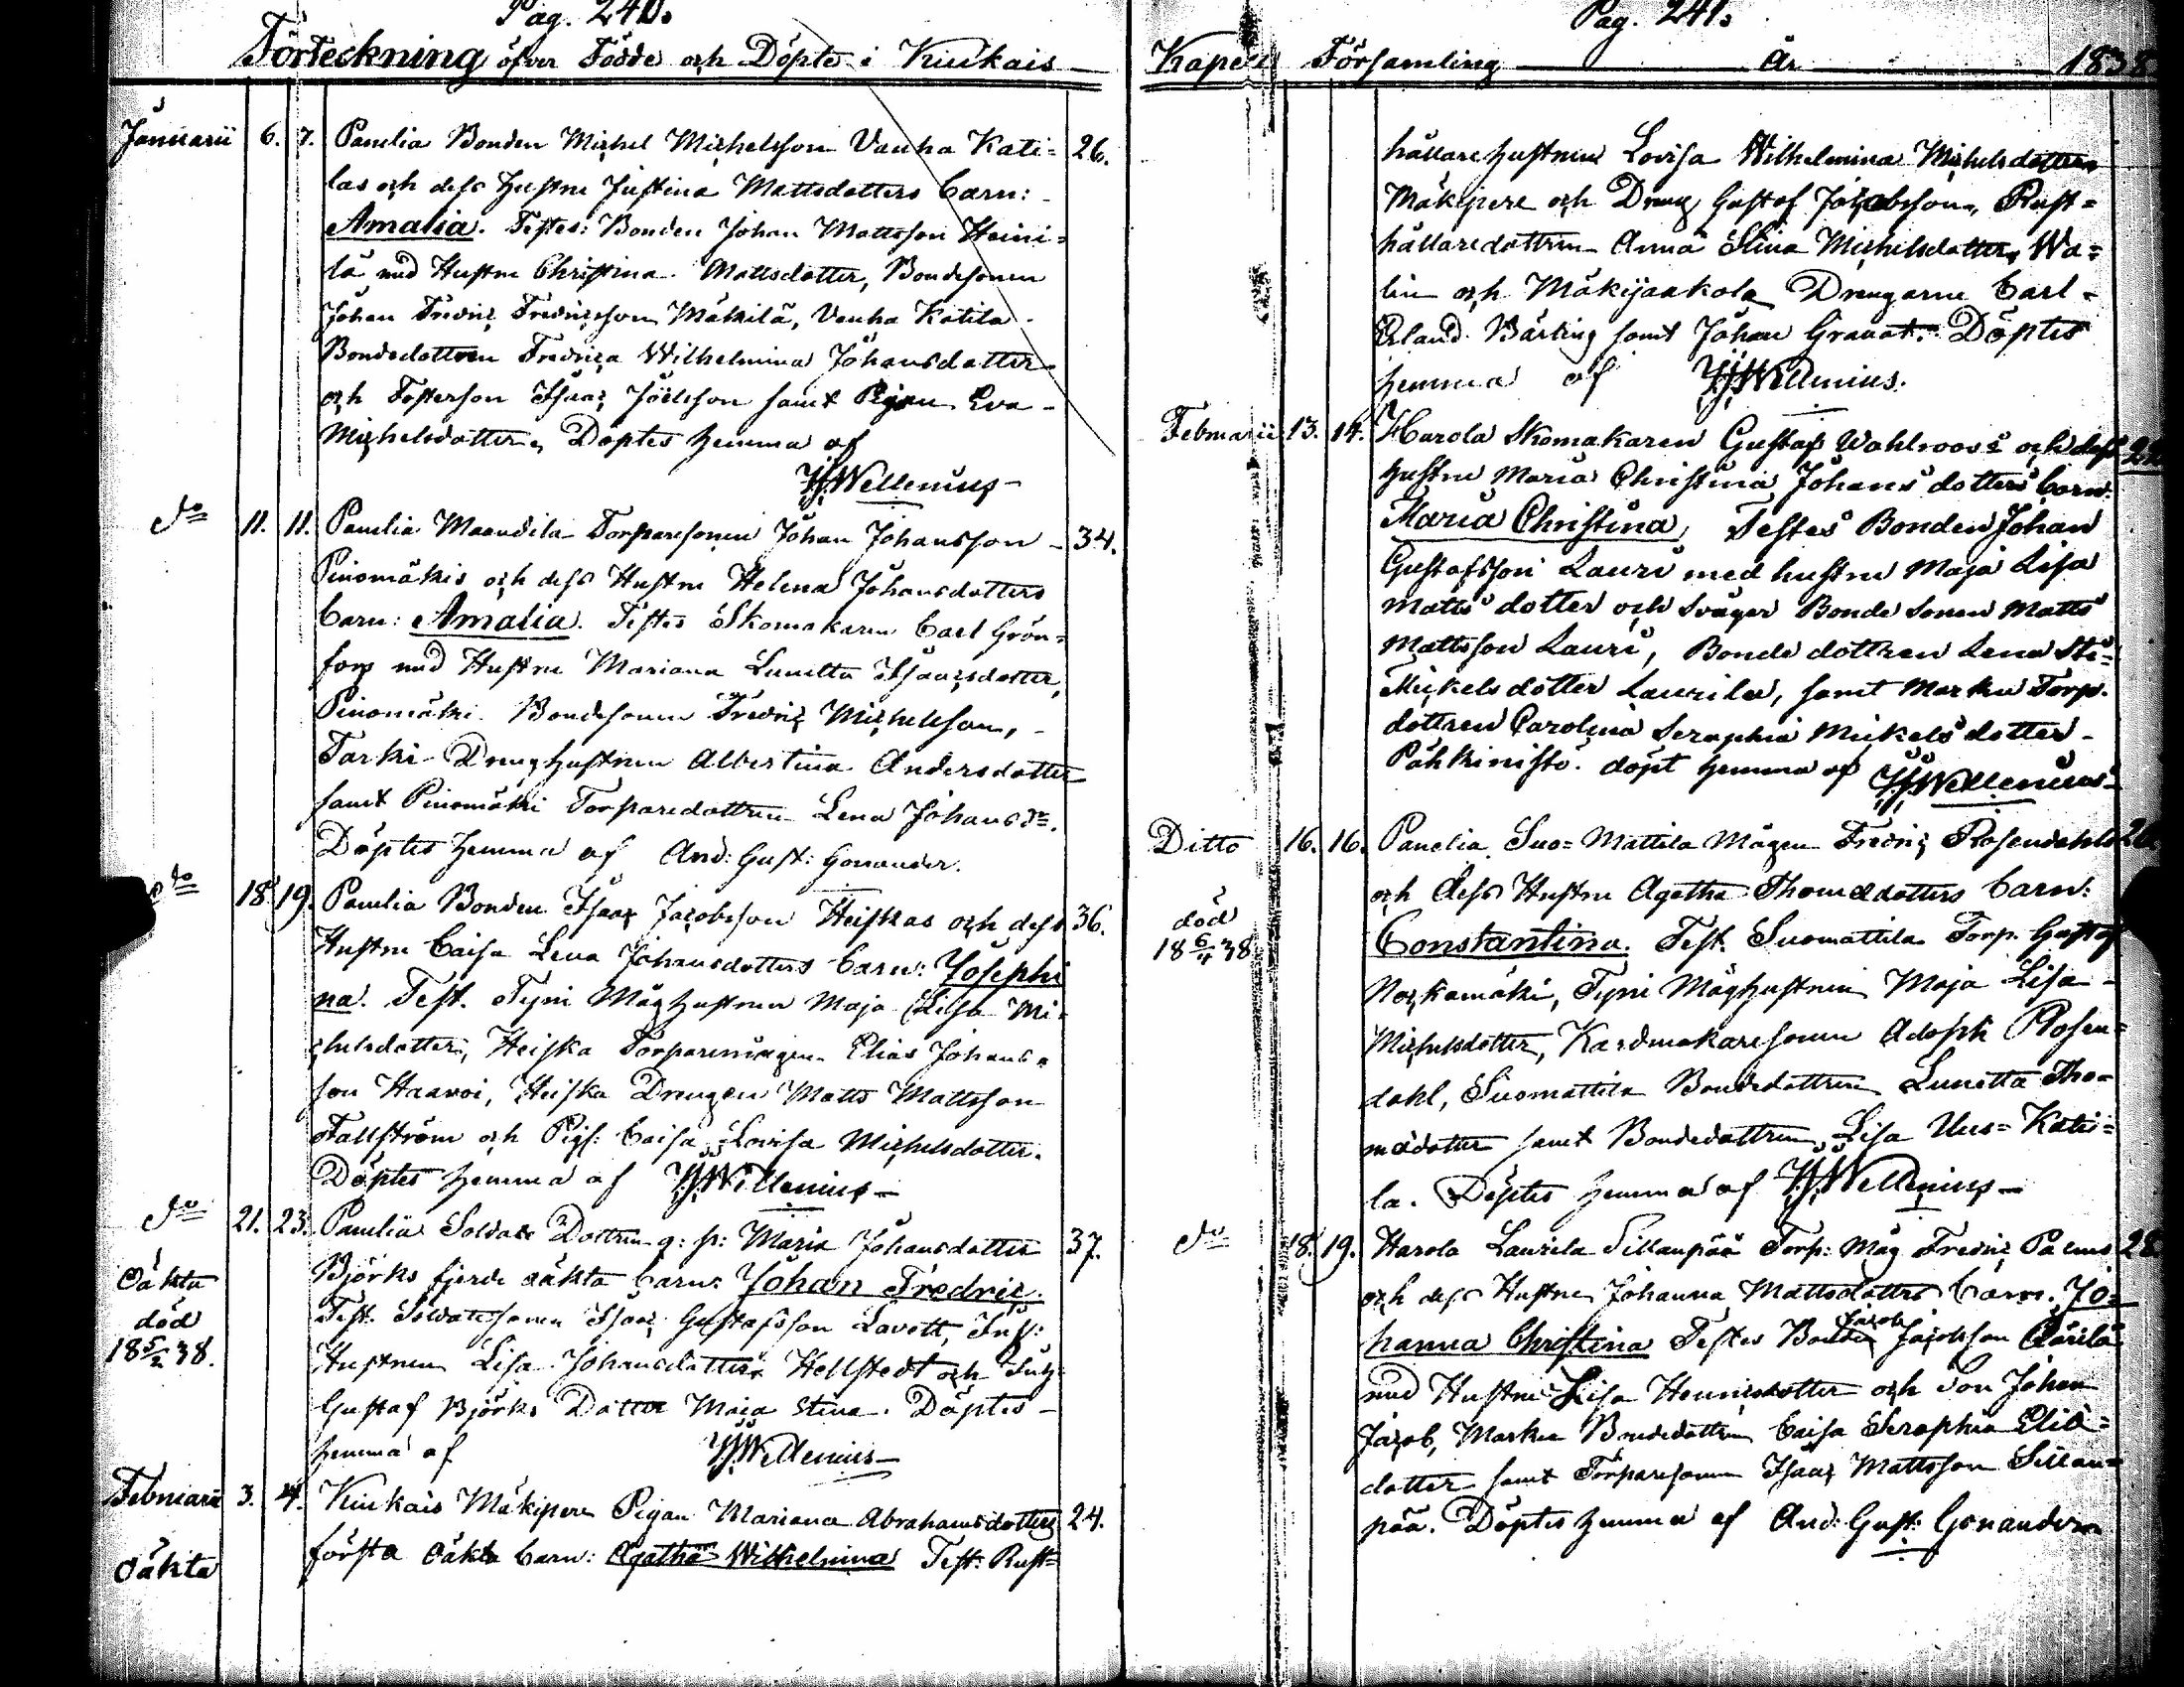 Pag. 240.
Förteckning öfver Födde och Döpte i Kiukais
Januarii 6. 7. Panelia Bonden Michel Michelsson Vanha Kati= 26.
las och dess Hustru Justina Mattsdotters barn:
Amalia. Testes: Bonden Johan Mattsson Heini=
lä med Hustru Christina Mattsdotter, Bondesonen
Johan Fredric Fredricsson Mäkilä, Vanha Katila
Bondedottren Fredrica Wilhelmina Johansdotter
och Fosterson Isaac Joelsson samt Pigan Eva
Michelsdotter, Döptes hemma af
Wellenius
do 11. 11. Panelia Maandila Torparesonen Johan Johansson 34.
Pinomäkis och dess Hustru Helena Johansdotters
barn: Amalia. Testes Skomakaren Carl Grön=
fors med Hustru Mariana Lunetta Isaacsdotter,
Pinomäki Bondesonen Fredric Michelsson,
Tarki Dränghustrun Albertina Andersdotter
samt Pinomäki Torparedottren Lena Johansdr.
Döptes hemma af And: Gust: Gonander.
do 18. 19. Panelia Bonden Isaac Jacobsson Heiskas och dess 36.
Hustru Caisa Lena Johansdotters barn: Josephi
na. Test. Tyni Måghustrun Maja Lisa Mi=
chelsdotter, Heiska Torparemågen Elias Johans=
son Haavoi, Heiska Drängen Matts Mattsson
Fallström och Pig: Caisa Lovisa Michelsdotter.
Döptes hemma af Wellenius
do 21. 23. Panelia Soldate Dottren q: p: Maria Johansdotter 37.
Oäkta
död
18 5/2 38.
Björks fjerde oäkta barn: Johan Fredric.
Test. Soldatesonen Isaac Gustafsson Lavett, Inh:
Hustrun Lisa Johansdotter Hellstedt och Inh:
Gustaf Björks Dotter Maja Stina. Döptes
hemma af Wellenius
Februarii 3. 4. Kiukais Mäkipere Pigan Mariana Abrahamsdotters 24.
oäkta
första oäkta barn: Agatha Wilhelmina Test: Rust=
Pag. 241.
Kapell Församling År 1838
hållare hustrun Lovisa Wilhelmina Michelsdotter
Mäkipere och Dreng Gustaf Jacobsson, Rust=
hållaredottren Anna Stina Michelsdotter, Wa=
lin och Mäkijaakola Drengarne Carl
Erland Bärling samt Johan Granat. Döptes
hemma af Wellenius.
Februarii 13. 14. Harola Skomakaren Gustaf Wahlroos's och dess 22
hustru Maria Christina Johans dotters barn:
Maria Christina, Testes Bonden Johan
Gustafsson Lauri med hustru Maja Lisa
Matts dotter och Svåger Bonde Sonen Matts
Mattsson Lauri, Bonde dottren Lena Sti=
Mickels dotter Laurila, samt Marku Torp.
dottren Carolina Seraphia Mickels dotter
Pähkinistö. döpt hemma af Wellenius
Ditto 16. 16. Panelia Suo=Mattila Mågen Fredric Rosendahls 26
död
18 6/4 38
och dess Hustru Agatha Thomædotters barn:
Constantina. Test. Suomattila Torp. Gustaf
Nockamäki, Tyni Måghustrun Maja Lisa
Michelsdotter, Kardmakaresonen Adolph Rosen=
dahl, Suomattila Bondedottren Lunetta Tho=
mædotter samt Bondedottren Lisa Uus=Kati=
la. Döptes hemma af Wellenius
do 18. 19. Harola Laurila Sillanpää Torp: Måg Fredric Palms 28
och dess Hustru Johanna Mattsdotters barn. Jo=
hanna Christina Testes Bonden Jacob Jacobsson Äärilä
med Hustru Lisa Henricsdotter och Son Johan
Jacob, Marku Bondedottren Caisa Seraphia Eliæ=
dotter samt Torparesonen Isaac Mattsson Sillan=
pää. Döptes hemma af And: Gust: Gonander